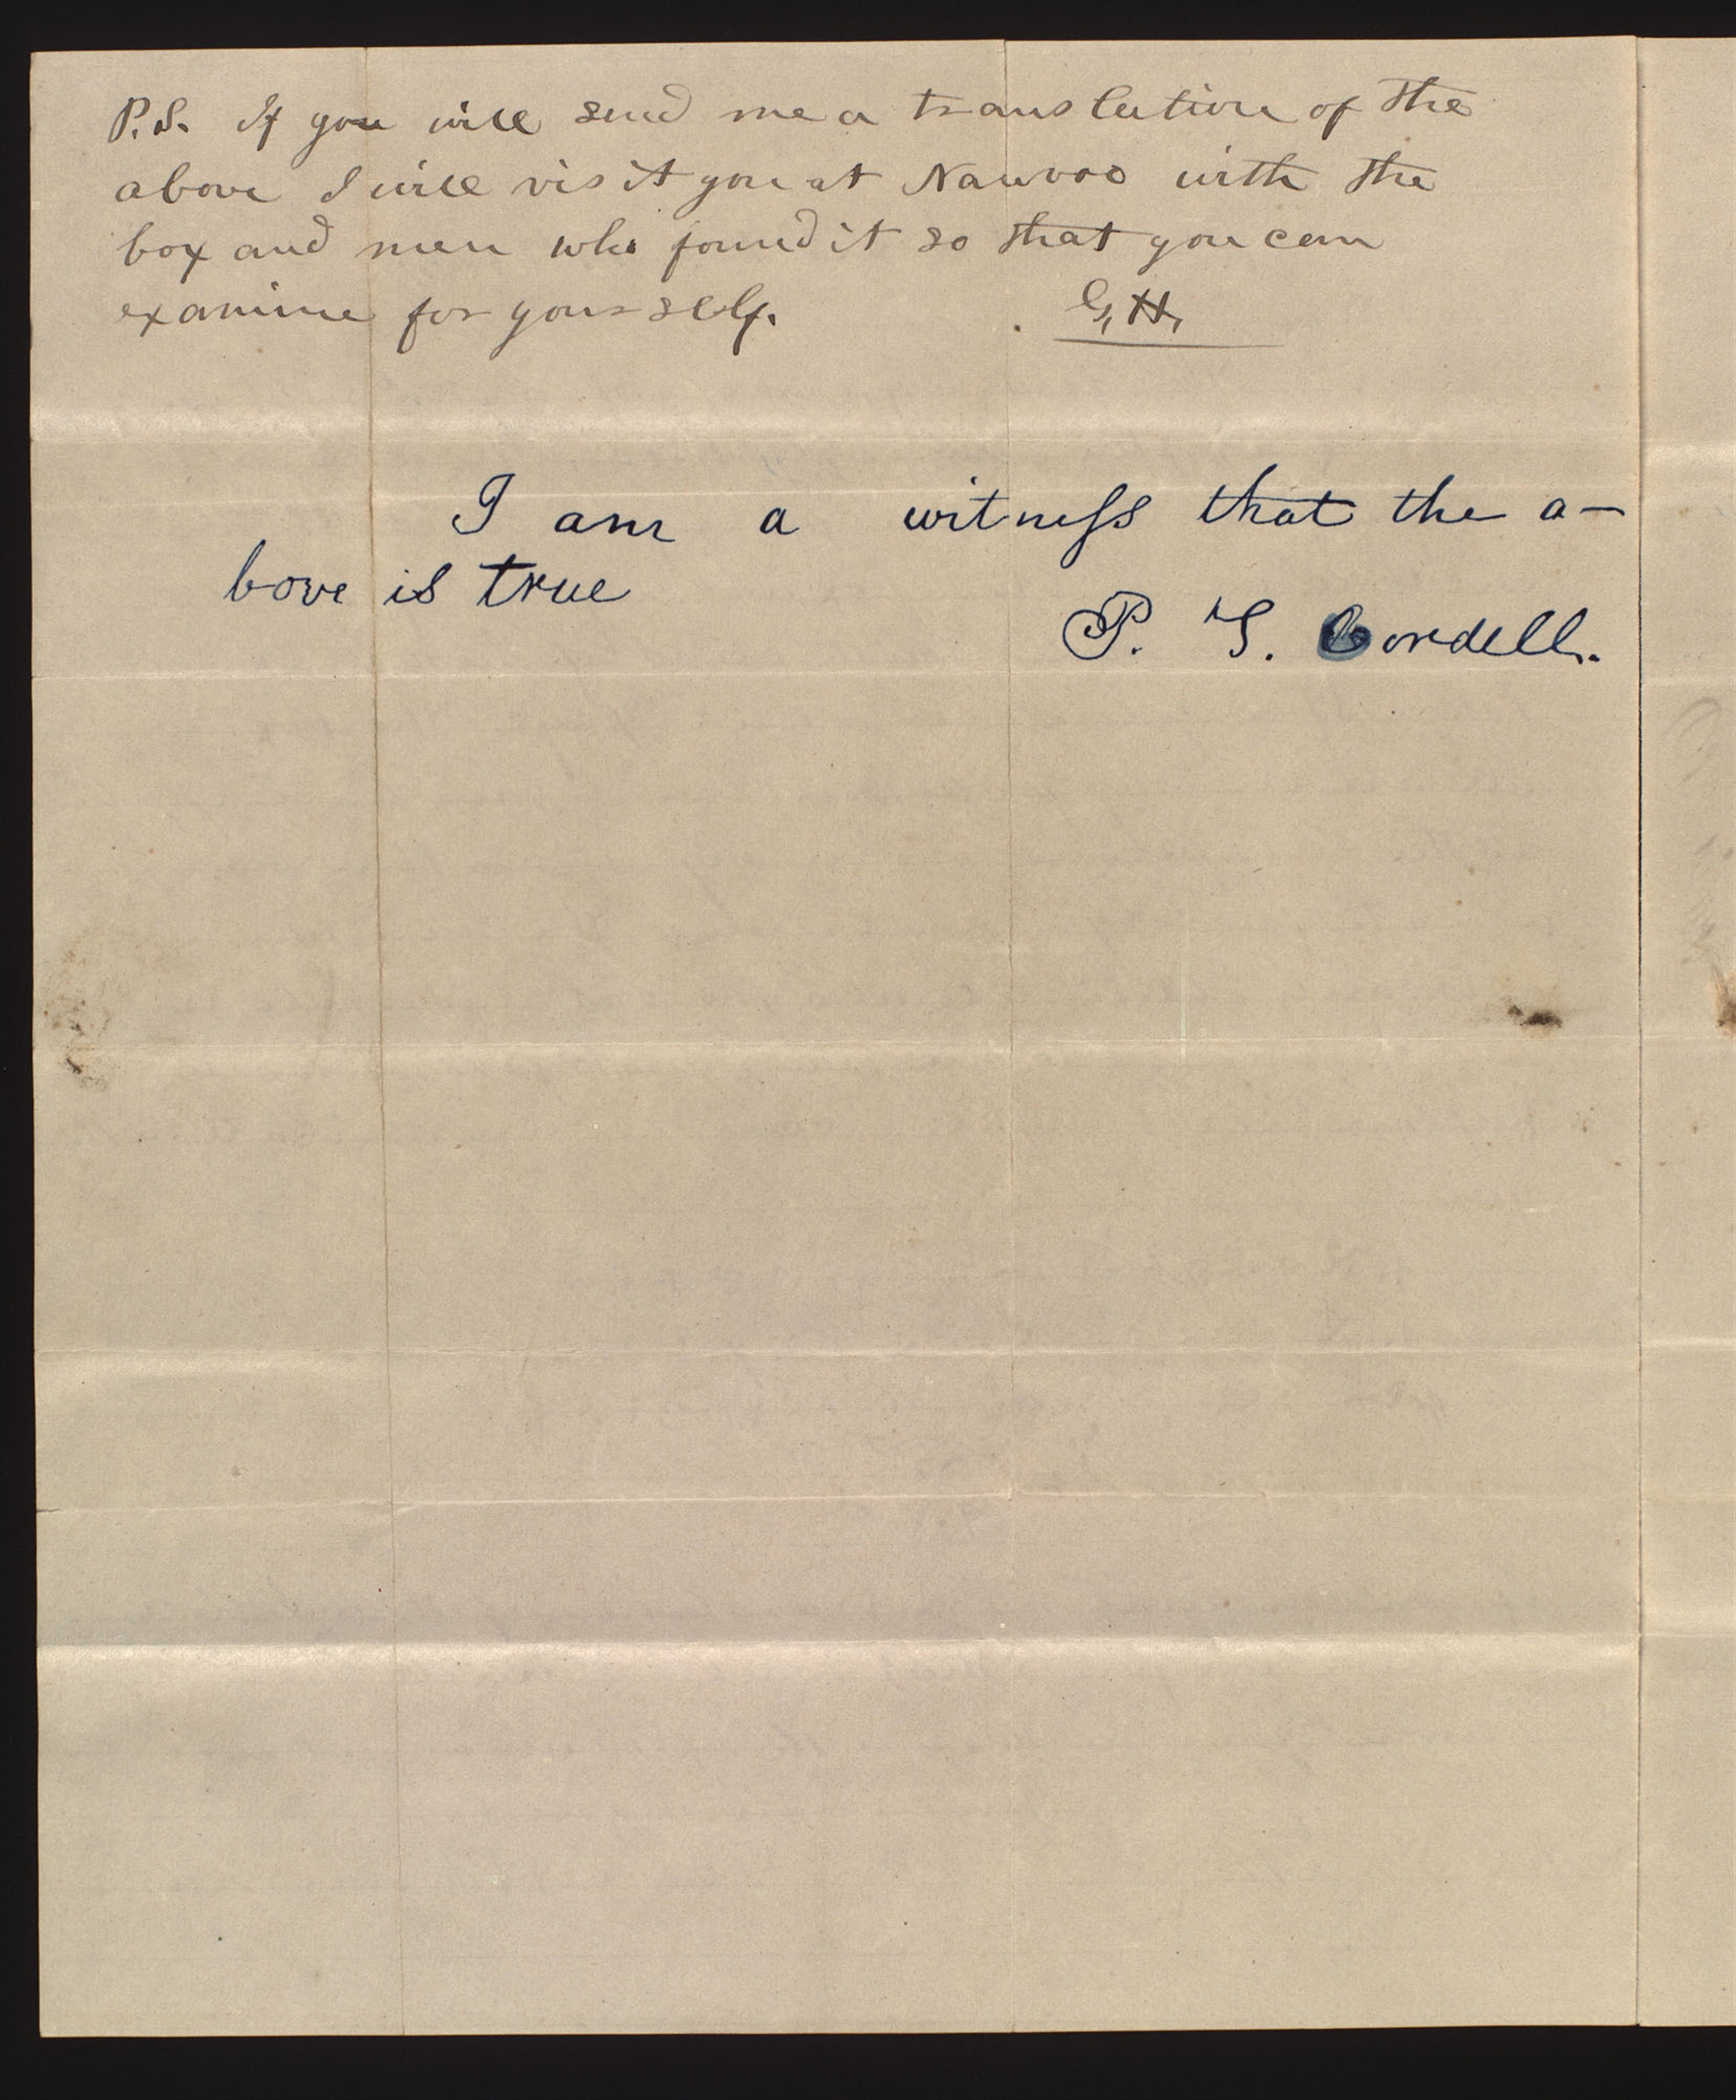 P.S. If you will send me a translation of the
above I will visit you at Nauvoo with the
box and men who found it so that you can
examine for yourself.
G, H,
I am a witness that the a-
bove is true
P. S. Cordell.